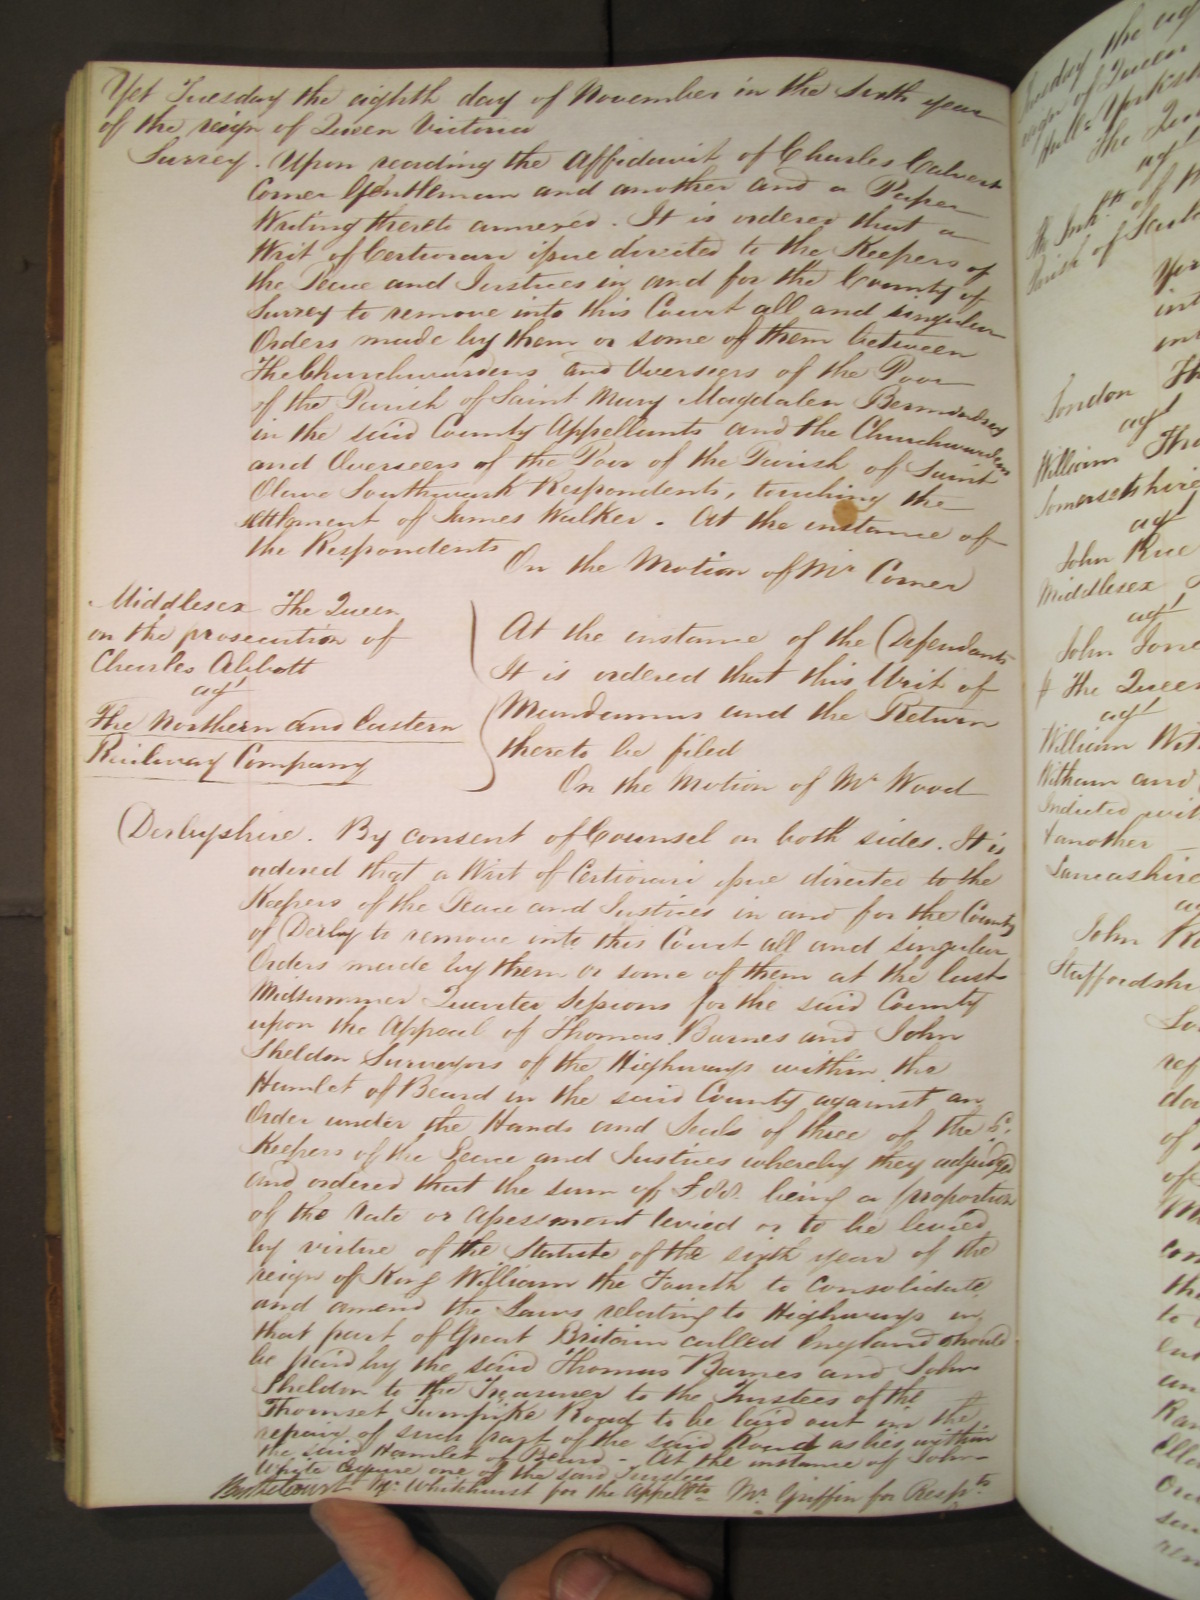 Yet Tuesday the eighth day of November in the Sixth year
of the reign of Queen Victoria
Surrey. Upon reading the Affidavit of Charles Calvert
Corner Gentleman and another and a Paper
Writing thereto annexed. It is ordered that a
Writ of Certiorari issue directed to the Keepers of
the Peace and Justices in and for the County of
Surrey to remove into this Court all and singular
Orders made by them or some of them between
The Churchwardens and Overseers of the Poor
of the Parish of Saint Mary Magdalen Bermondsey
in the said County Appellants and the Churchwardens
and Overseers of the Poor of the Parish of Saint
Olave Southwark Respondents, touching the
settlement of James Walker. At the instance of
the Respondents
On the Motion of Mr Corner
Middlesex The Queen
on the prosecution of
Charles Abbott
agt
The Northern and Eastern
Railway Company
At the instance of the Defendants
It is ordered that this Writ of
Mandamus and the Return
thereto be filed
On the Motion of Mr Wood
Derbyshire. By consent of Counsel on both sides. It is
ordered that a Writ of Certiorari issue directed to the
Keepers of the Peace and Justices in and for the County
of Derby to remove into this Court all and singular
Orders made by them or some of them at the last
Midsummer Quarter Sessions for the said County
upon the Appeal of Thomas Barnes and John
Sheldon Surveyors of the Highways within the
Hamlet of Beard in the said County against an
Order under the Hands and Seals of three of the
Keepers of the Peace and Justices whereby they adjudged
and ordered that the sum of £88. being a proportion
of the rate or assessment levied or to be levied
by virtue of the Statute of the sixth year of the
reign of King William the Fourth to consolidate
and amend the Laws relating to Highways in
that part of Great Britain called England should
be paid by the said Thomas Barnes and John
Sheldon to the Treasurer to the Trustees of the
Thornset Turnpike Road to be laid out in the
repair of such part of the said Road as lies within
the said Hamlet of Beard - At the instance of John
White Esquire one of the said Trustees
By the Court Mr Whitehurst for the Appellts Mr Griffin for Respts
Tuesday the
reign of Queen
Hull Yorksh
The
agt
of
Parish of
London Th
agt
William Tho
Somersetshire
agt
John Rice
Middlesex
agt
John Jone
The Queen
agt
William Wit
Witham and
Indicted wit
another
Lancashire
John
Staffordshi